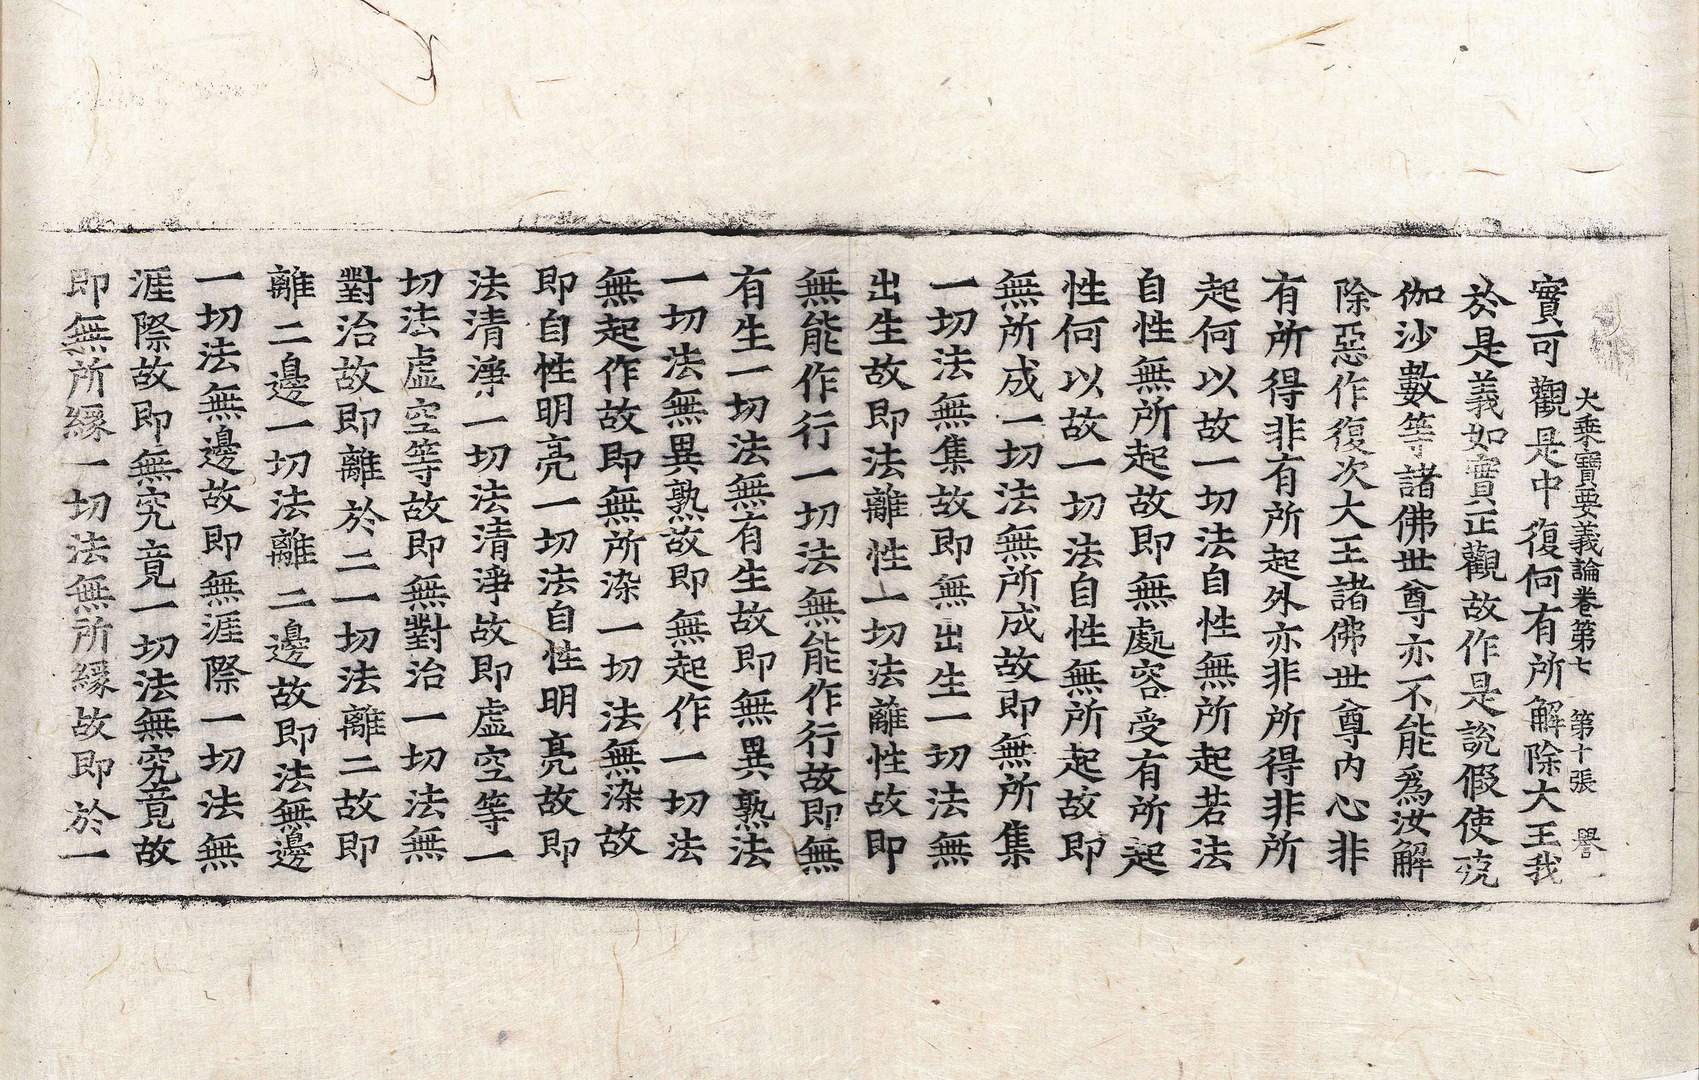 大乘寶要義論卷第七 第十張 譽
實可觀是中復何有所解除大王我
於是義如實正觀故作是說假使殑
伽沙數等諸佛世尊亦不能爲汝解
除惡作復次大王諸佛世尊內心非
有所得非有所起外亦非所得非所
起何以故一切法自性無所起若法
自性無所起故即無處容受有所起
性何以故一切法自性無所起故即
無所成一切法無所成故即無所集
一切法無集故即無出生一切法無
出生故即法離性一切法離性故即
無能作行一切法無能作行故即無
有生一切法無有生故即無異熟法
一切法無異熟故即無起作一切法
無起作故即無所染一切法無染故
即自性明亮一切法自性明亮故即
法清淨一切法清淨故即虛空等一
切法虛空等故即無對治一切法無
對治故即離於二一切法離二故即
離二邊一切法離二邊故即法無邊
一切法無邊故即無涯際一切法無
涯際故即無究竟一切法無究竟故
即無所緣一切法無所緣故即於一